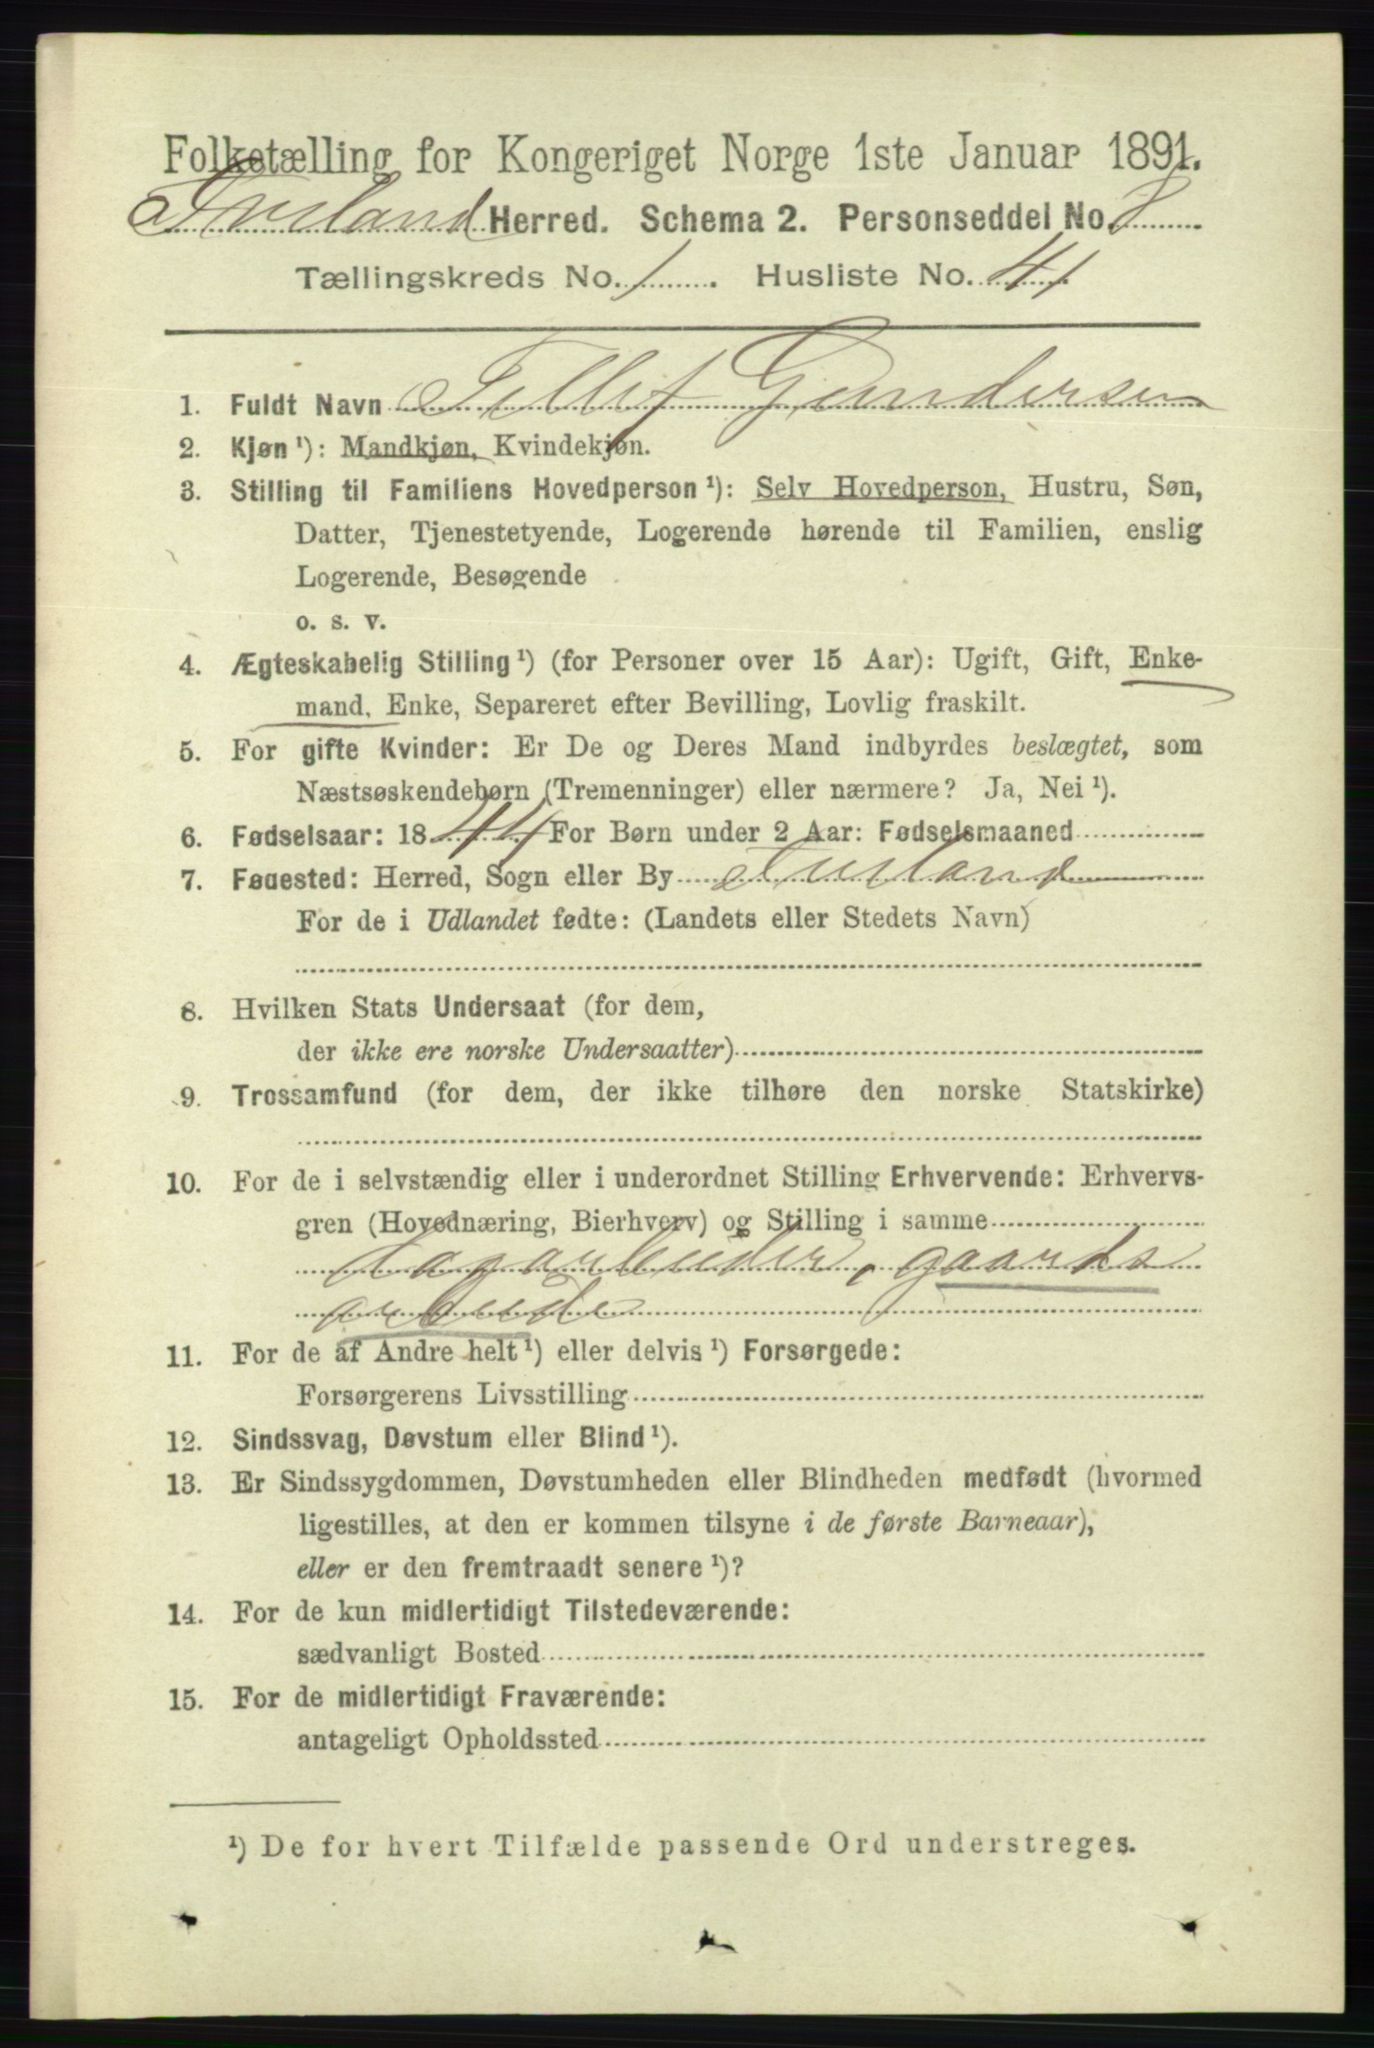 Folketælling for Kongeriget Norge 1ste Januar 1891.
Iveland Herred. Schema 2. Personseddel No. 8
Tællingskreds No. 1. Husliste No. 41
1. Fuldt Navn Tellef Gundersen
2. Kjøn ¹): Mandkjøn, Kvindekjøn.
3. Stilling til Familiens Hovedperson ¹): Selv Hovedperson, Hustru, Søn,
Datter, Tjenestetyende, Logerende hørende til Familien, enslig
Logerende, Besøgende
o. s. v.
4. Ægteskabelig Stilling ¹) (for Personer over 15 Aar): Ugift, Gift, Enke-
mand, Enke, Separeret efter Bevilling, Lovlig fraskilt.
5. For gifte Kvinder: Er De og Deres Mand indbyrdes beslægtet, som
Næstsøskendebørn (Tremenninger) eller nærmere? Ja, Nei ¹).
6. Fødselsaar: 1844 For Børn under 2 Aar: Fødselsmaaned
7. Fødested: Herred, Sogn eller By Iveland
For de i Udlandet fødte: (Landets eller Stedets Navn)
8. Hvilken Stats Undersaat (for dem,
der ikke ere norske Undersaatter)
9. Trossamfund (for dem, der ikke tilhøre den norske Statskirke)
10. For de i selvstændig eller i underordnet Stilling Erhvervende: Erhvervs-
gren (Hovednæring, Bierhverv) og Stilling i samme
Dagarbeider, gaards
arbeide
11. For de af Andre helt ¹) eller delvis ¹) Forsørgede:
Forsørgerens Livsstilling
12. Sindssvag, Døvstum eller Blind ¹).
13. Er Sindssygdommen, Døvstumheden eller Blindheden medfødt (hvormed
ligestilles, at den er kommen tilsyne i de første Barneaar),
eller er den fremtraadt senere ¹)?
14. For de kun midlertidigt Tilstedeværende:
sædvanligt Bosted
15. For de midlertidigt Fraværende:
antageligt Opholdssted
¹) De for hvert Tilfælde passende Ord understreges.